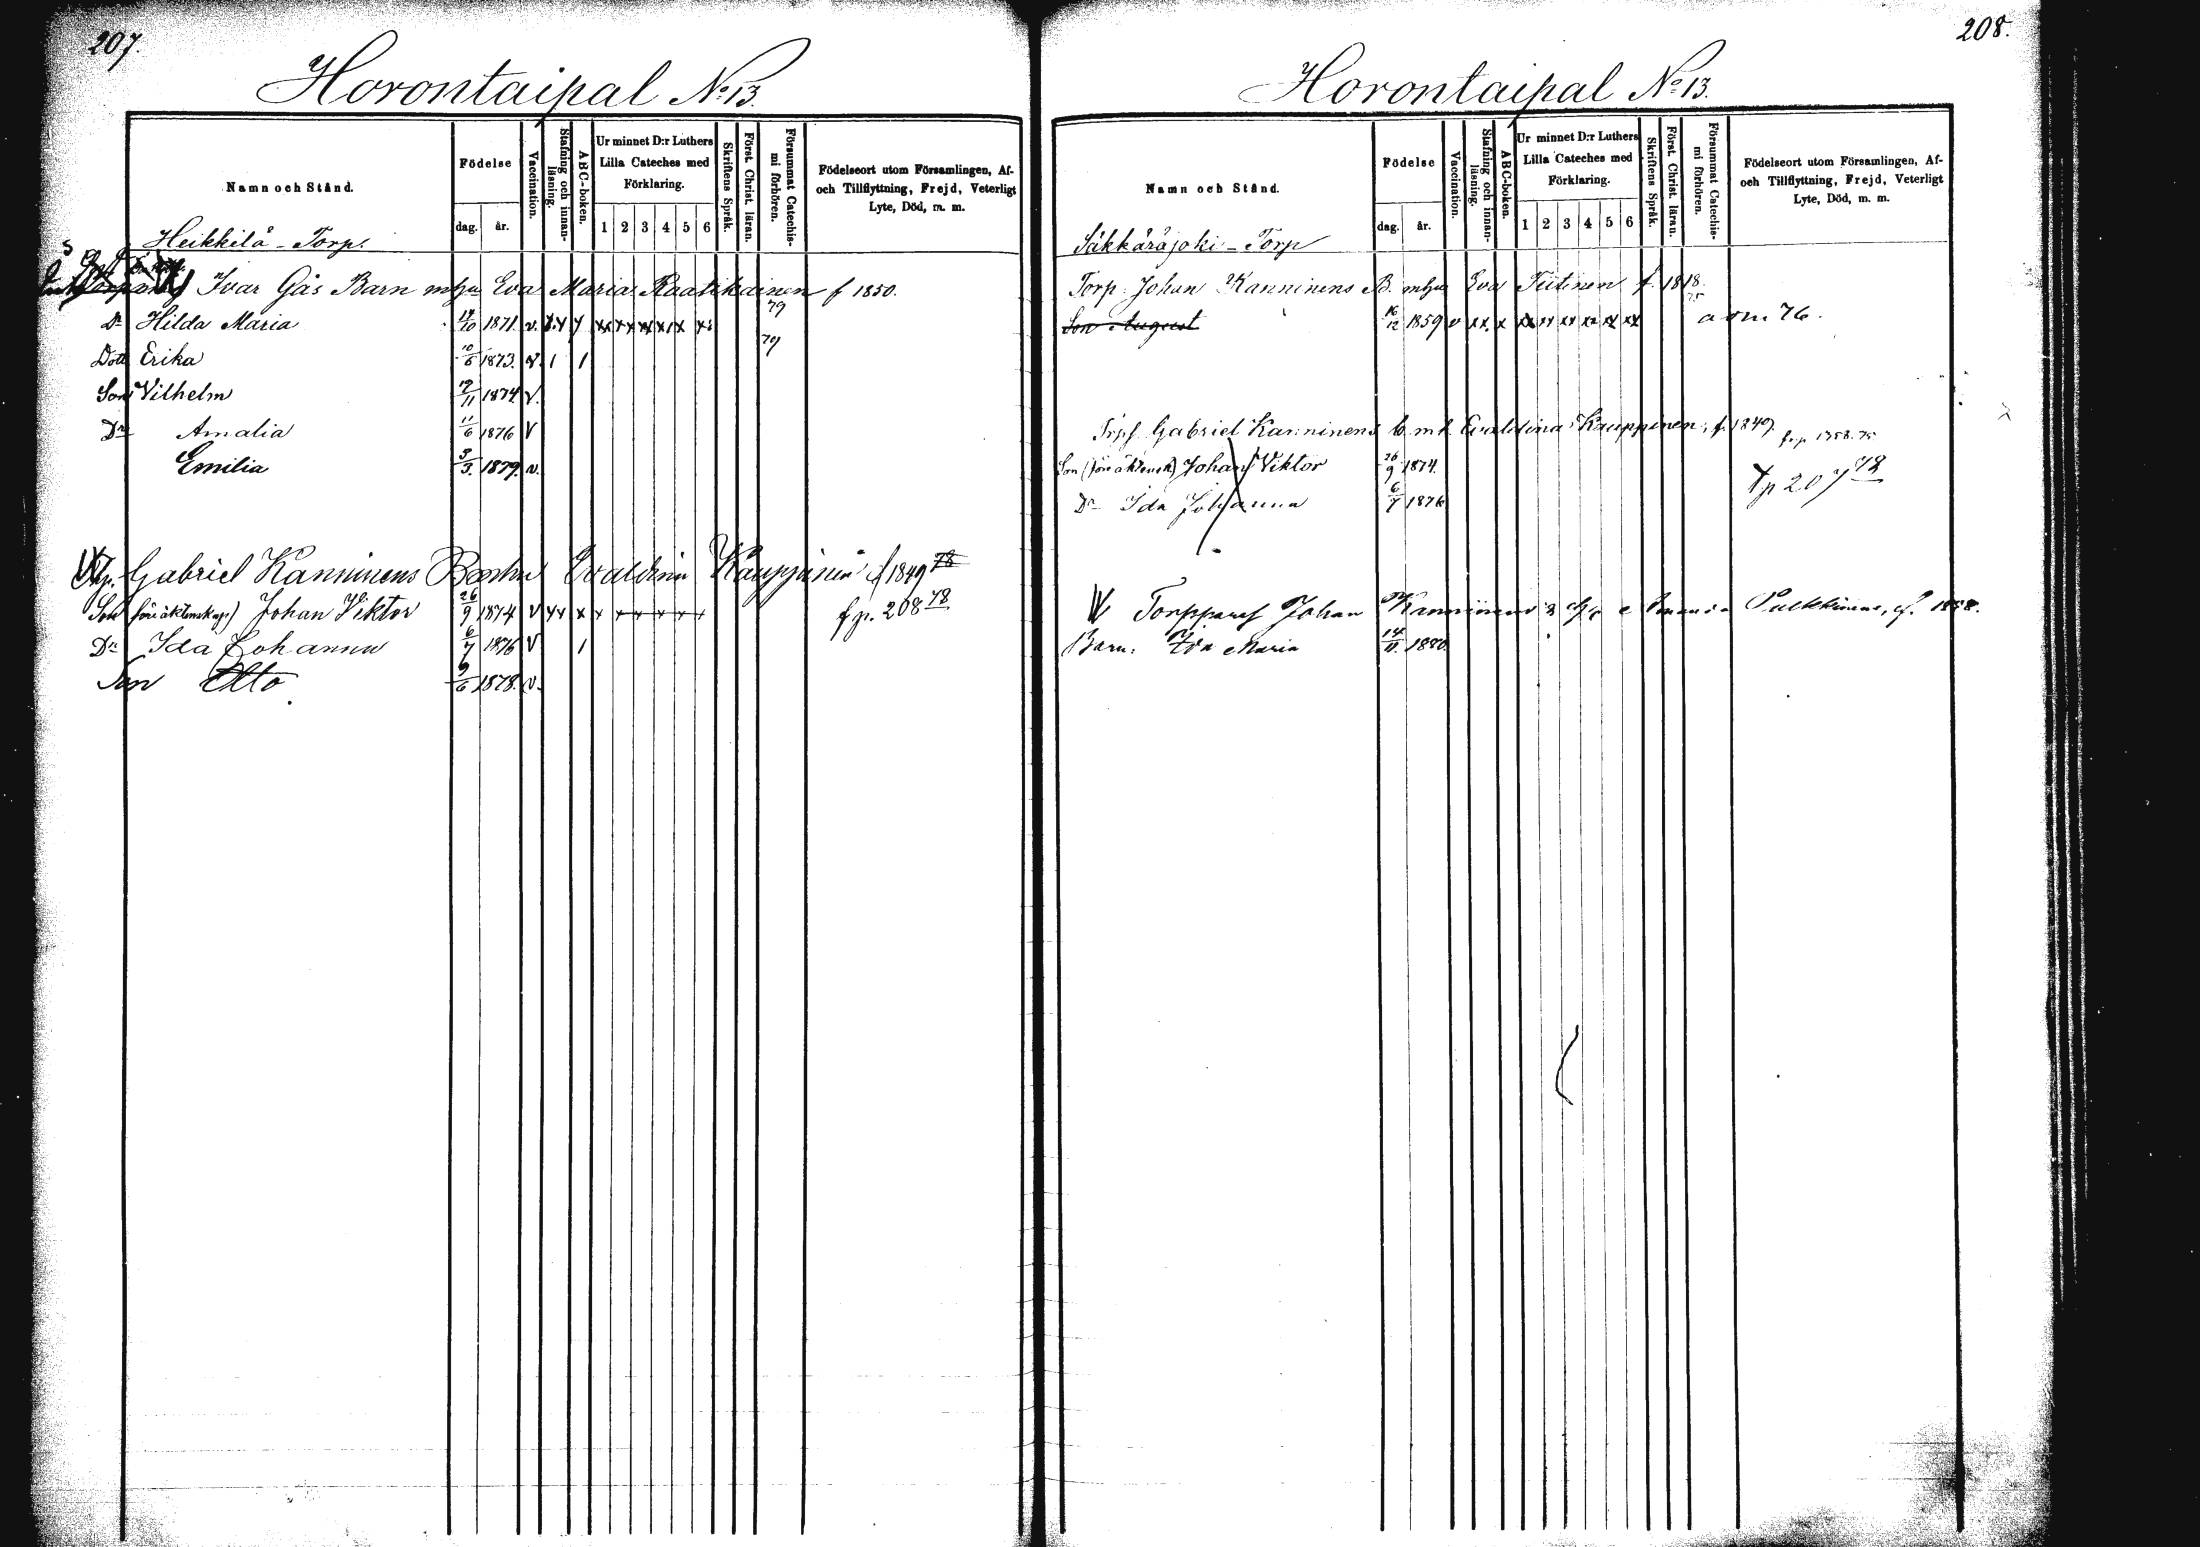 207.
Horontaipal No. 13.
Namn och Stånd.
Födelse
dag. år.
Vaccination.
Stafning och innanläsning.
ABC-boken.
Ur minnet D:r Luthers
Lilla Cateches med
Förklaring.
1 2 3 4 5 6
Skriftens Språk.
Först. Christ. läran.
Försummat Catechismi förhören.
Födelseort utom Församlingen, Af-
och Tillflyttning, Frejd, Veterligt
Lyte, Död, m. m.
Heikkilä - Torp.
Ivar Gås Barn m hu Eva Maria Raatikainen f 1850.
79
Dr Hilda Maria 14/10 1871. v. x.y y xx xx xx xx x x.
79
Dott Erika 10/6 1873. v. 1 1
Son Vilhelm 12/11 1874 v.
Dr Amalia 11/6 1876 v
Emilia 3/3. 1879. v.
Gabriel Kanninens Evaldina Kauppinen f 1849 78
Son före äktenskap) Johan Viktor 26/9 1874 v yy x x x x x x x f p. 208 78
Dr Ida Johanna 6/7 1876 v 1
Son Otto 9/6 1878. v.
208.
Horontaipal No. 13.
Namn och Stånd.
Födelse
dag. år.
Vaccination.
Stafning och innanläsning.
ABC-boken.
Ur minnet D:r Luthers
Lilla Cateches med
Förklaring.
1 2 3 4 5 6
Skriftens Språk.
Först. Christ. läran.
Försummat Catechismi förhören.
Födelseort utom Församlingen, Af-
och Tillflyttning, Frejd, Veterligt
Lyte, Död, m. m.
Säkkäräjoki - Torp
Torp. Johan Kanninens B. m hu Eva Tiitinen f. 1818.
75
Son August 16/12 1859 v xx. x xx xx xx xx xx xx 76.
Gabriel Kanninens b. m h. Evaldina Kauppinen, f. 1849.
Son (före äktensk) Johan Viktor 26/9 1874.
Dr Ida Johanna 6/7 1876
t p 207 78
Torpparef Johan Kanninens f. 1858.
Barn: Ida Maria 14/11. 1880.